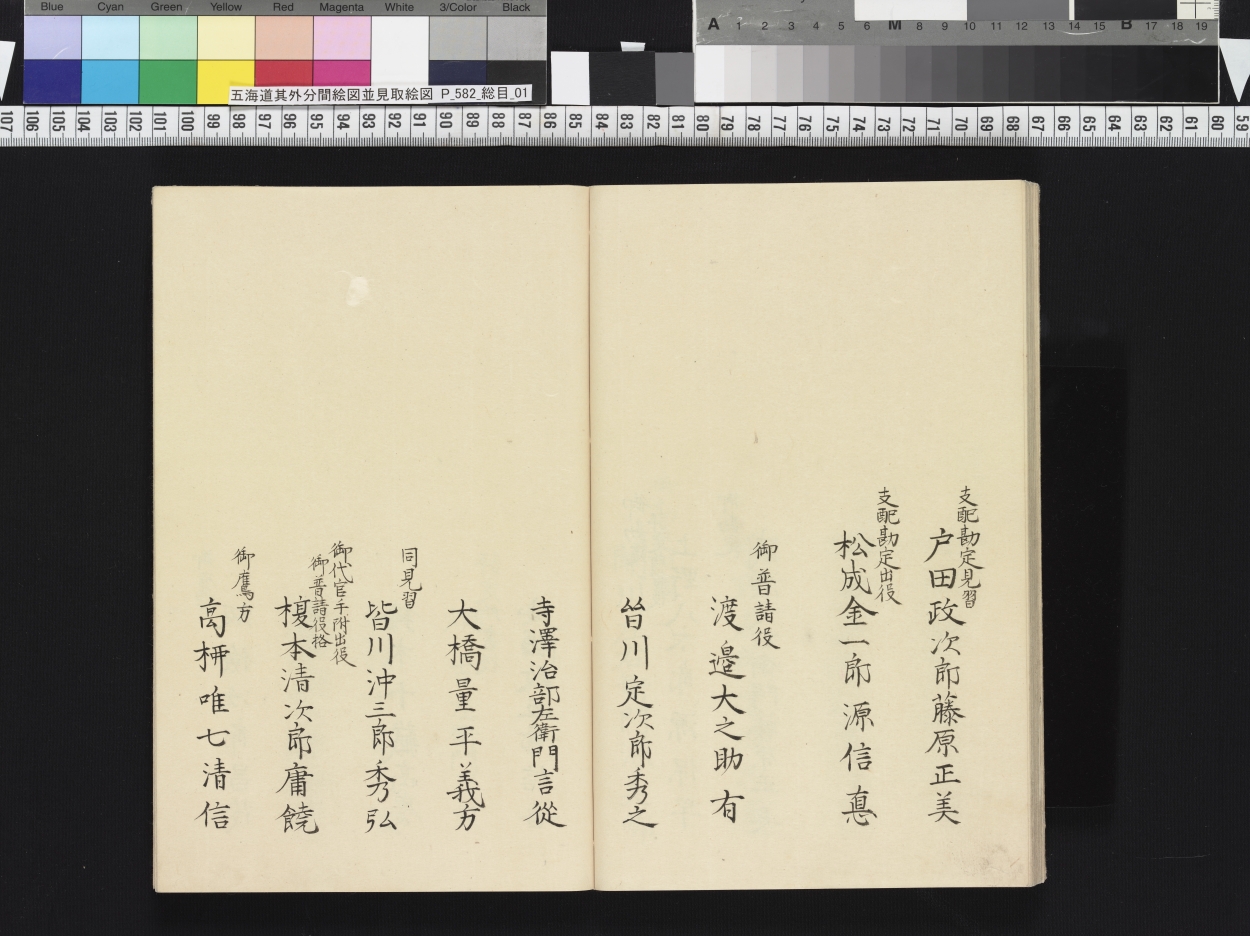 Blue Cyan Green Yellow Red Magenta White 3/Color Black
A 1 2 3 4 5 6 M 8 9 10 11 12 13 14 15 B 17 18 19
五海道其外分間絵図並見取絵図 P_582_総目_01
107 106 105 104 103 102 101 100 99 98 97 96 95 94 93 92 91 90 89 88 87 86 85 84 83 82 81 80 79 78 77 76 75 74 73 72 71 70 69 68 67 66 65 64 63 62 61 60 59
支配勘定見習
戸田政次郎藤原正美
支配勘定出役
松成金一郎源信悳
御普請役
渡邉大之助有
皆川定次郎秀之
寺澤治部左衛門言從
大橋量平義方
同見習
皆川沖三郎秀弘
御代官手附出役
御普請役格
榎本清次郎庸饒
御鷹方
高枬唯七清信